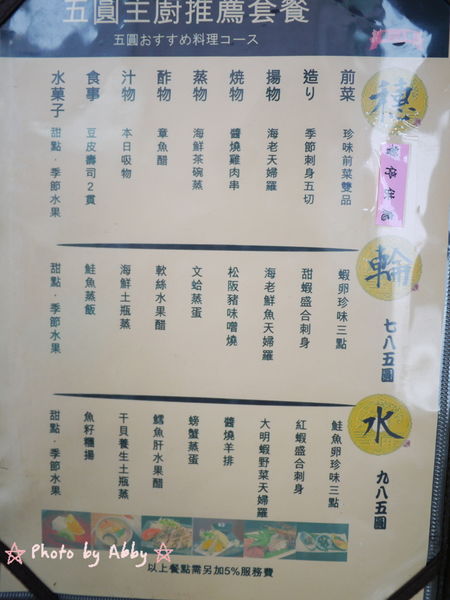 五圓主廚推薦套餐
五圓おすすめ料理コース
前菜 造り 揚物 焼物 蒸物 酢物 汁物 食事 水菓子
珍味前菜雙品
季節刺身五切
海老天婦羅
醬燒雞肉串
海鮮茶碗蒸
章魚醋
本日吸物
豆皮壽司2貫
甜點・季節水果
輪
七八五圓
蝦卵珍味三點
甜蝦盛合刺身
海老鮮魚天婦羅
松阪豬味噌燒
文蛤蒸蛋
軟絲水果醋
海鮮土瓶蒸
鮭魚蒸飯
甜點・季節水果
水
九八五圓
鮭魚卵珍味三點
紅蝦盛合刺身
大明蝦野菜天婦羅
醬燒羊排
螃蟹蒸蛋
鱈魚肝水果醋
干貝養生土瓶蒸
魚籽糰揚
甜點・季節水果
以上餐點需另加5%服務費
Photo by Abby